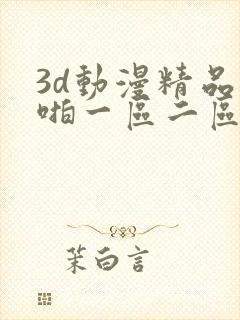 3d動漫精品
啪一區二區
茉白言